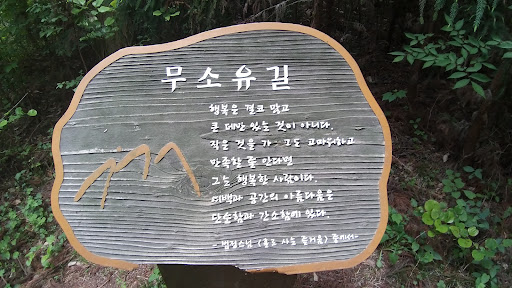 무소유길
행복은 결코 많고
큰 데만 있는 것이 아니다.
작은 것을 가 고도 고마워하고
만족할 줄 안다면
그는 행복한 사람이다.
여백과 공간의 아름다움은
단순함과 간소함에 있다.
-법정스님 (홀로 사는 즐거움) 중에서-